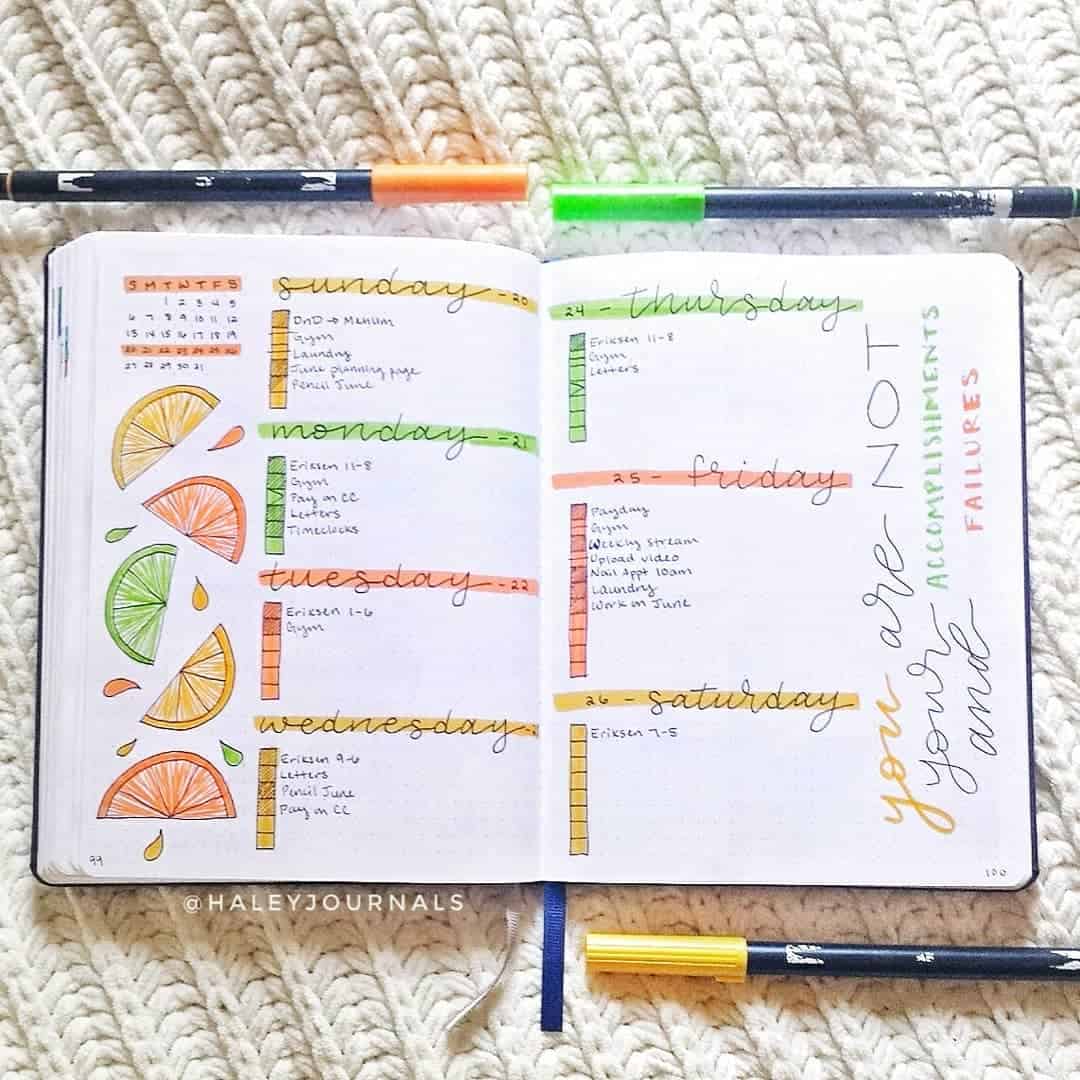 S M T W T F S
1 2 3 4 5
6 7 8 9 10 11 12
13 14 15 16 17 18 19
20 21 22 23 24 25 26
27 28 29 30 31
sunday - 20
DnD →
Gym
Laundry
June planning page
Pencil June
monday - 21
Eriksen 11-8
Gym
Pay on CC
Letters
Timeclocks
tuesday - 22
Eriksen 1-6
Gym
wednesday - 2
Eriksen 9-6
Letters
Pencil June
Pay on CC
99
24 - thursday
Eriksen 11-8
Gym
Letters
25 - friday
Payday
Gym
Weekly stream
Upload video
Nail Appt 10am
Laundry
Work on June
26 - saturday
Eriksen 7-5
you are NOT
your ACCOMPLISHMENTS
and FAILURES
100
@HALEYJOURNALS